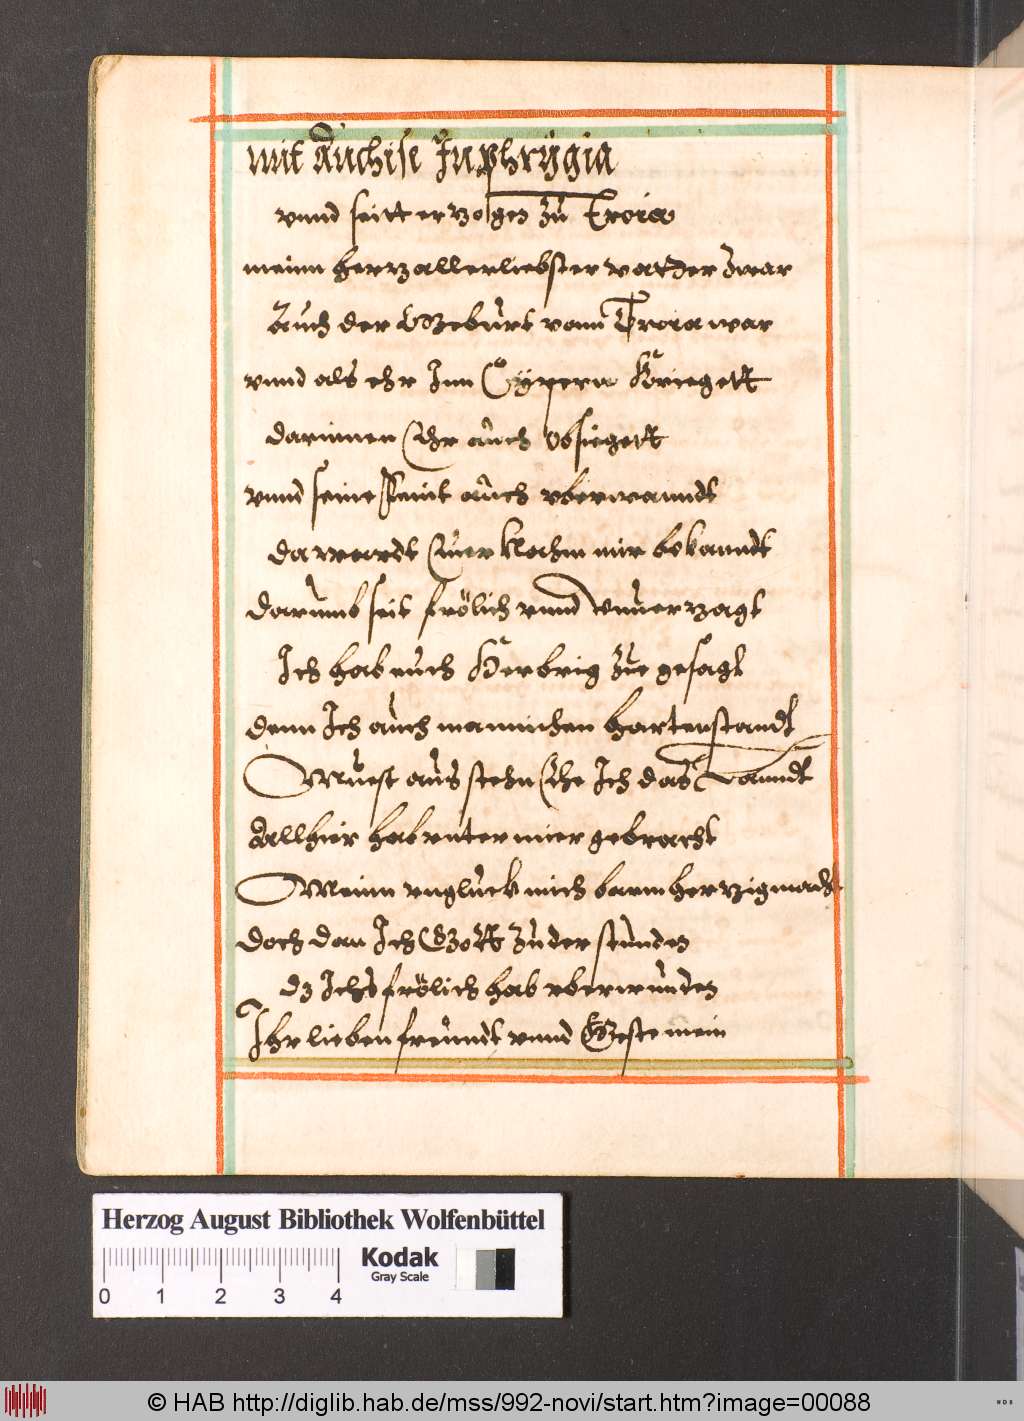 mit Anchise In phrÿgia
vnnd seitt erzogen zu Troia
meinn herzallerliebster vatder zwar
Auch der Gebùrt vonn Troia war
vnnd als ehr Inn Cÿpern Kriegett
darinnen Ehr auch obsiegett
vnnd seine Feint auch vberwanndt
da wardt Euer Nahm mir bekanndt
darùmb seit frölich vnnd vnuerzagt
Ich hab euch Herbrig zue gesagt
denn Ich auch mannichen harten standt
Muest aus stehn Ehe Ich das Lanndt
Allhier hab vnter mier gebracht
Meinn vnglùck mich barmherzig macht
doch dan Ich Gott zu der stùnden
dz Ichs frölich hab vberwùnden
Ihr lieben freùndt vnnd Geste mein
Herzog August Bibliothek Wolfenbüttel
Kodak
Gray Scale
0 1 2 3 4
© HAB http://diglib.hab.de/mss/992-novi/start.htm?image=00088